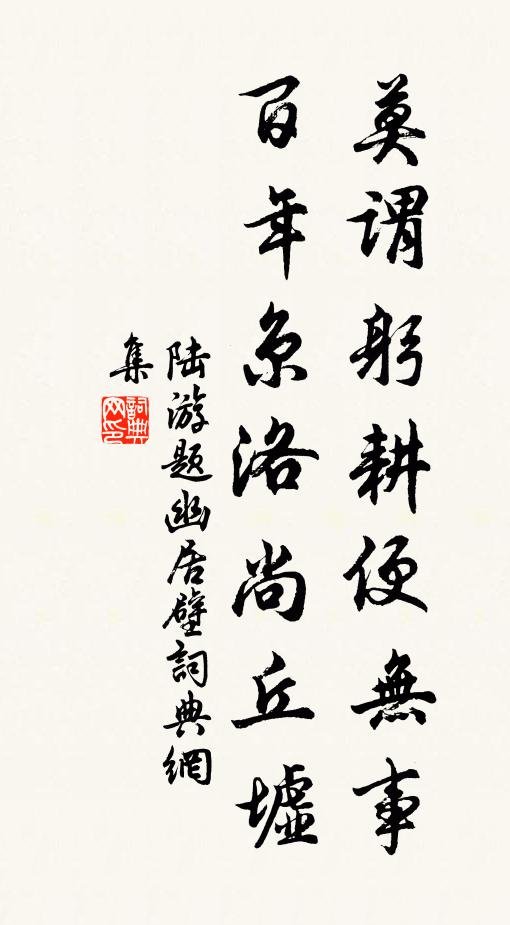 莫謂躬耕便無事
百年京洛尚丘墟
陆游题幽居壁詞典網
集
詞典
网印